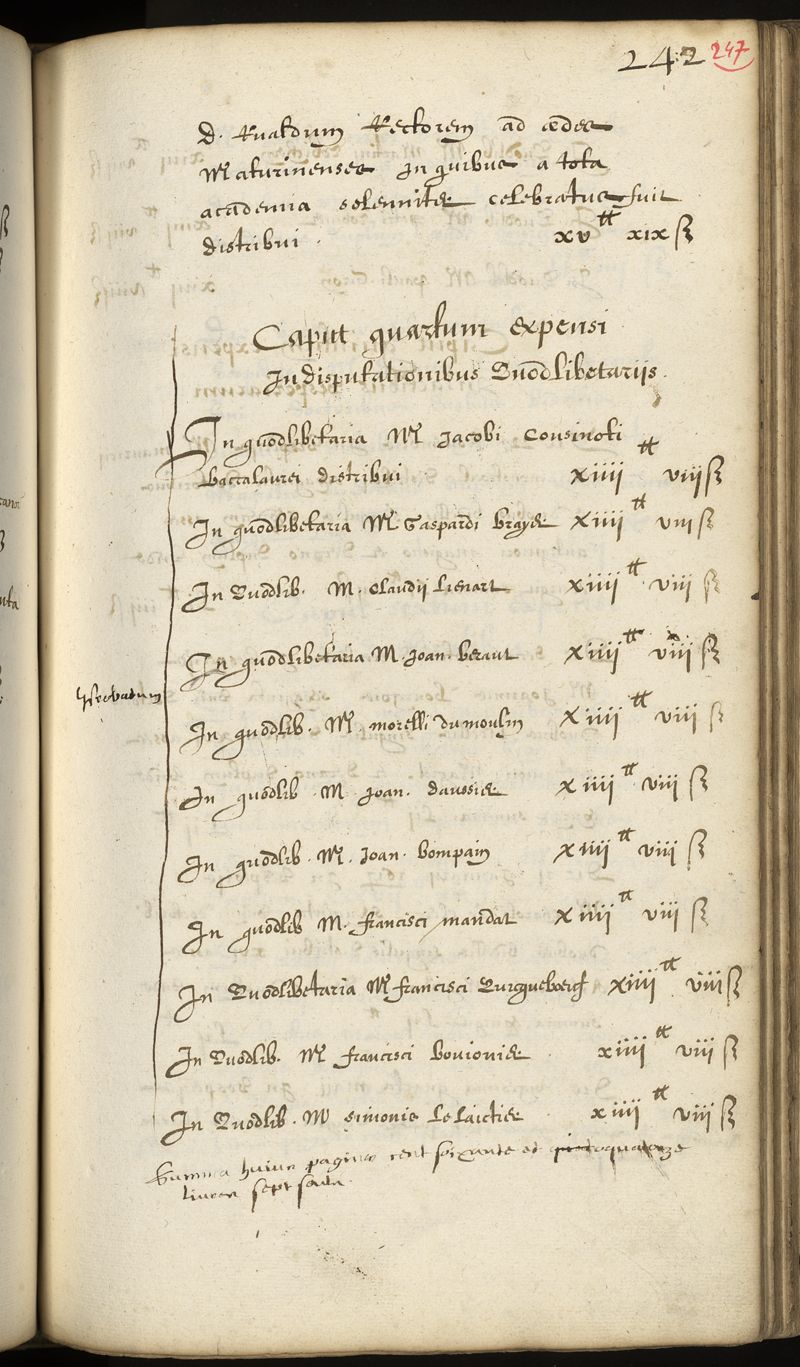 242 247
D. Rualdum Rectorem ad ædes
Maturinenses in quibus a tota
academia solenniter celebratus fuit
distribui. xv tt xix ß
Caput quartum expensi
In disputationibus Quodlibetariis.
In quodlibetaria M. Jacobi Cousinoti
Baccalaurei distribui xiiii tt viii ß
In quodlibetaria M. Gaspardi Brayer xiiii tt viii ß
In Quodlib. M. Claudii Lienart xiiii tt viii ß
In quodlibetaria M. Joan. Beraut xiiii tt viii ß
In quodlib. M. Morelli Dumoulin xiiii tt viii ß
In quodlib. M. Joan. xiiii tt viii ß
In quodlib. M. Joan. Bompain xiiii tt viii ß
In quodlib. M. Francisci Mandat xiiii tt viii ß
In Quodlibetaria M. Francisci xiiii tt viii ß
In Quodlib. M. Francisci Bouionier xiiii tt viii ß
In Quodlib. M. Simonis Le Laictier xiiii tt viii ß
Summa huius paginæ cent soixante et quatorze
livres sept solz.